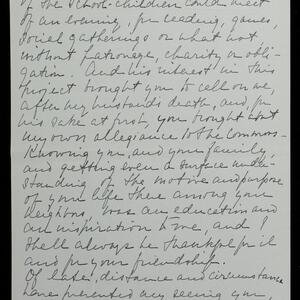 of the school-children could meet
of an evening, for reading, games,
social gatherings or what not
without patronage, charity or obli-
gation. And his interest in this
project brought you to call on me,
after my husband's death, and, for
his sake at first, you brought about
my own allegiance to the Commons.
Knowing you, and your family,
and getting even a surface under-
standing of the motive and purpose
of your life there among your
neighbors, was an education and
an inspiration to me, and I
shall always be thankful for it
and for your friendship.
Of late, distance and circumstance
have prevented my seeing you,